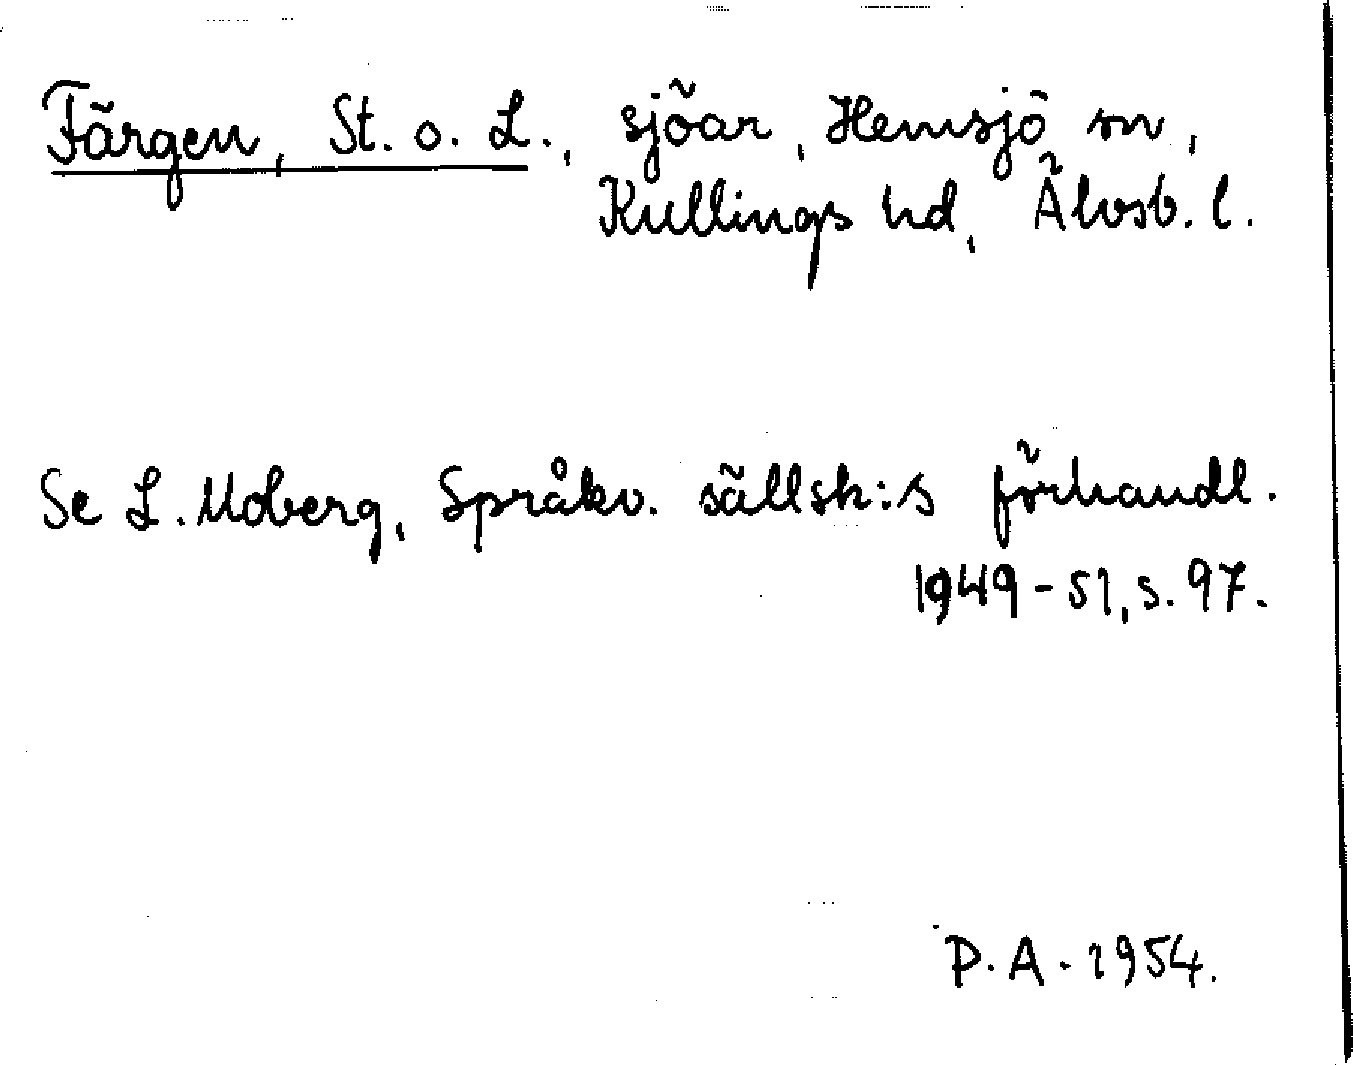 Färgen, St. o. L., sjöar, Hemsjö sn,
Kullings hd, Älvsb. l.
Se L. Moberg, Språkv. sällsk:s förhandl.
1949-51, s. 97.
P. A. 1954.